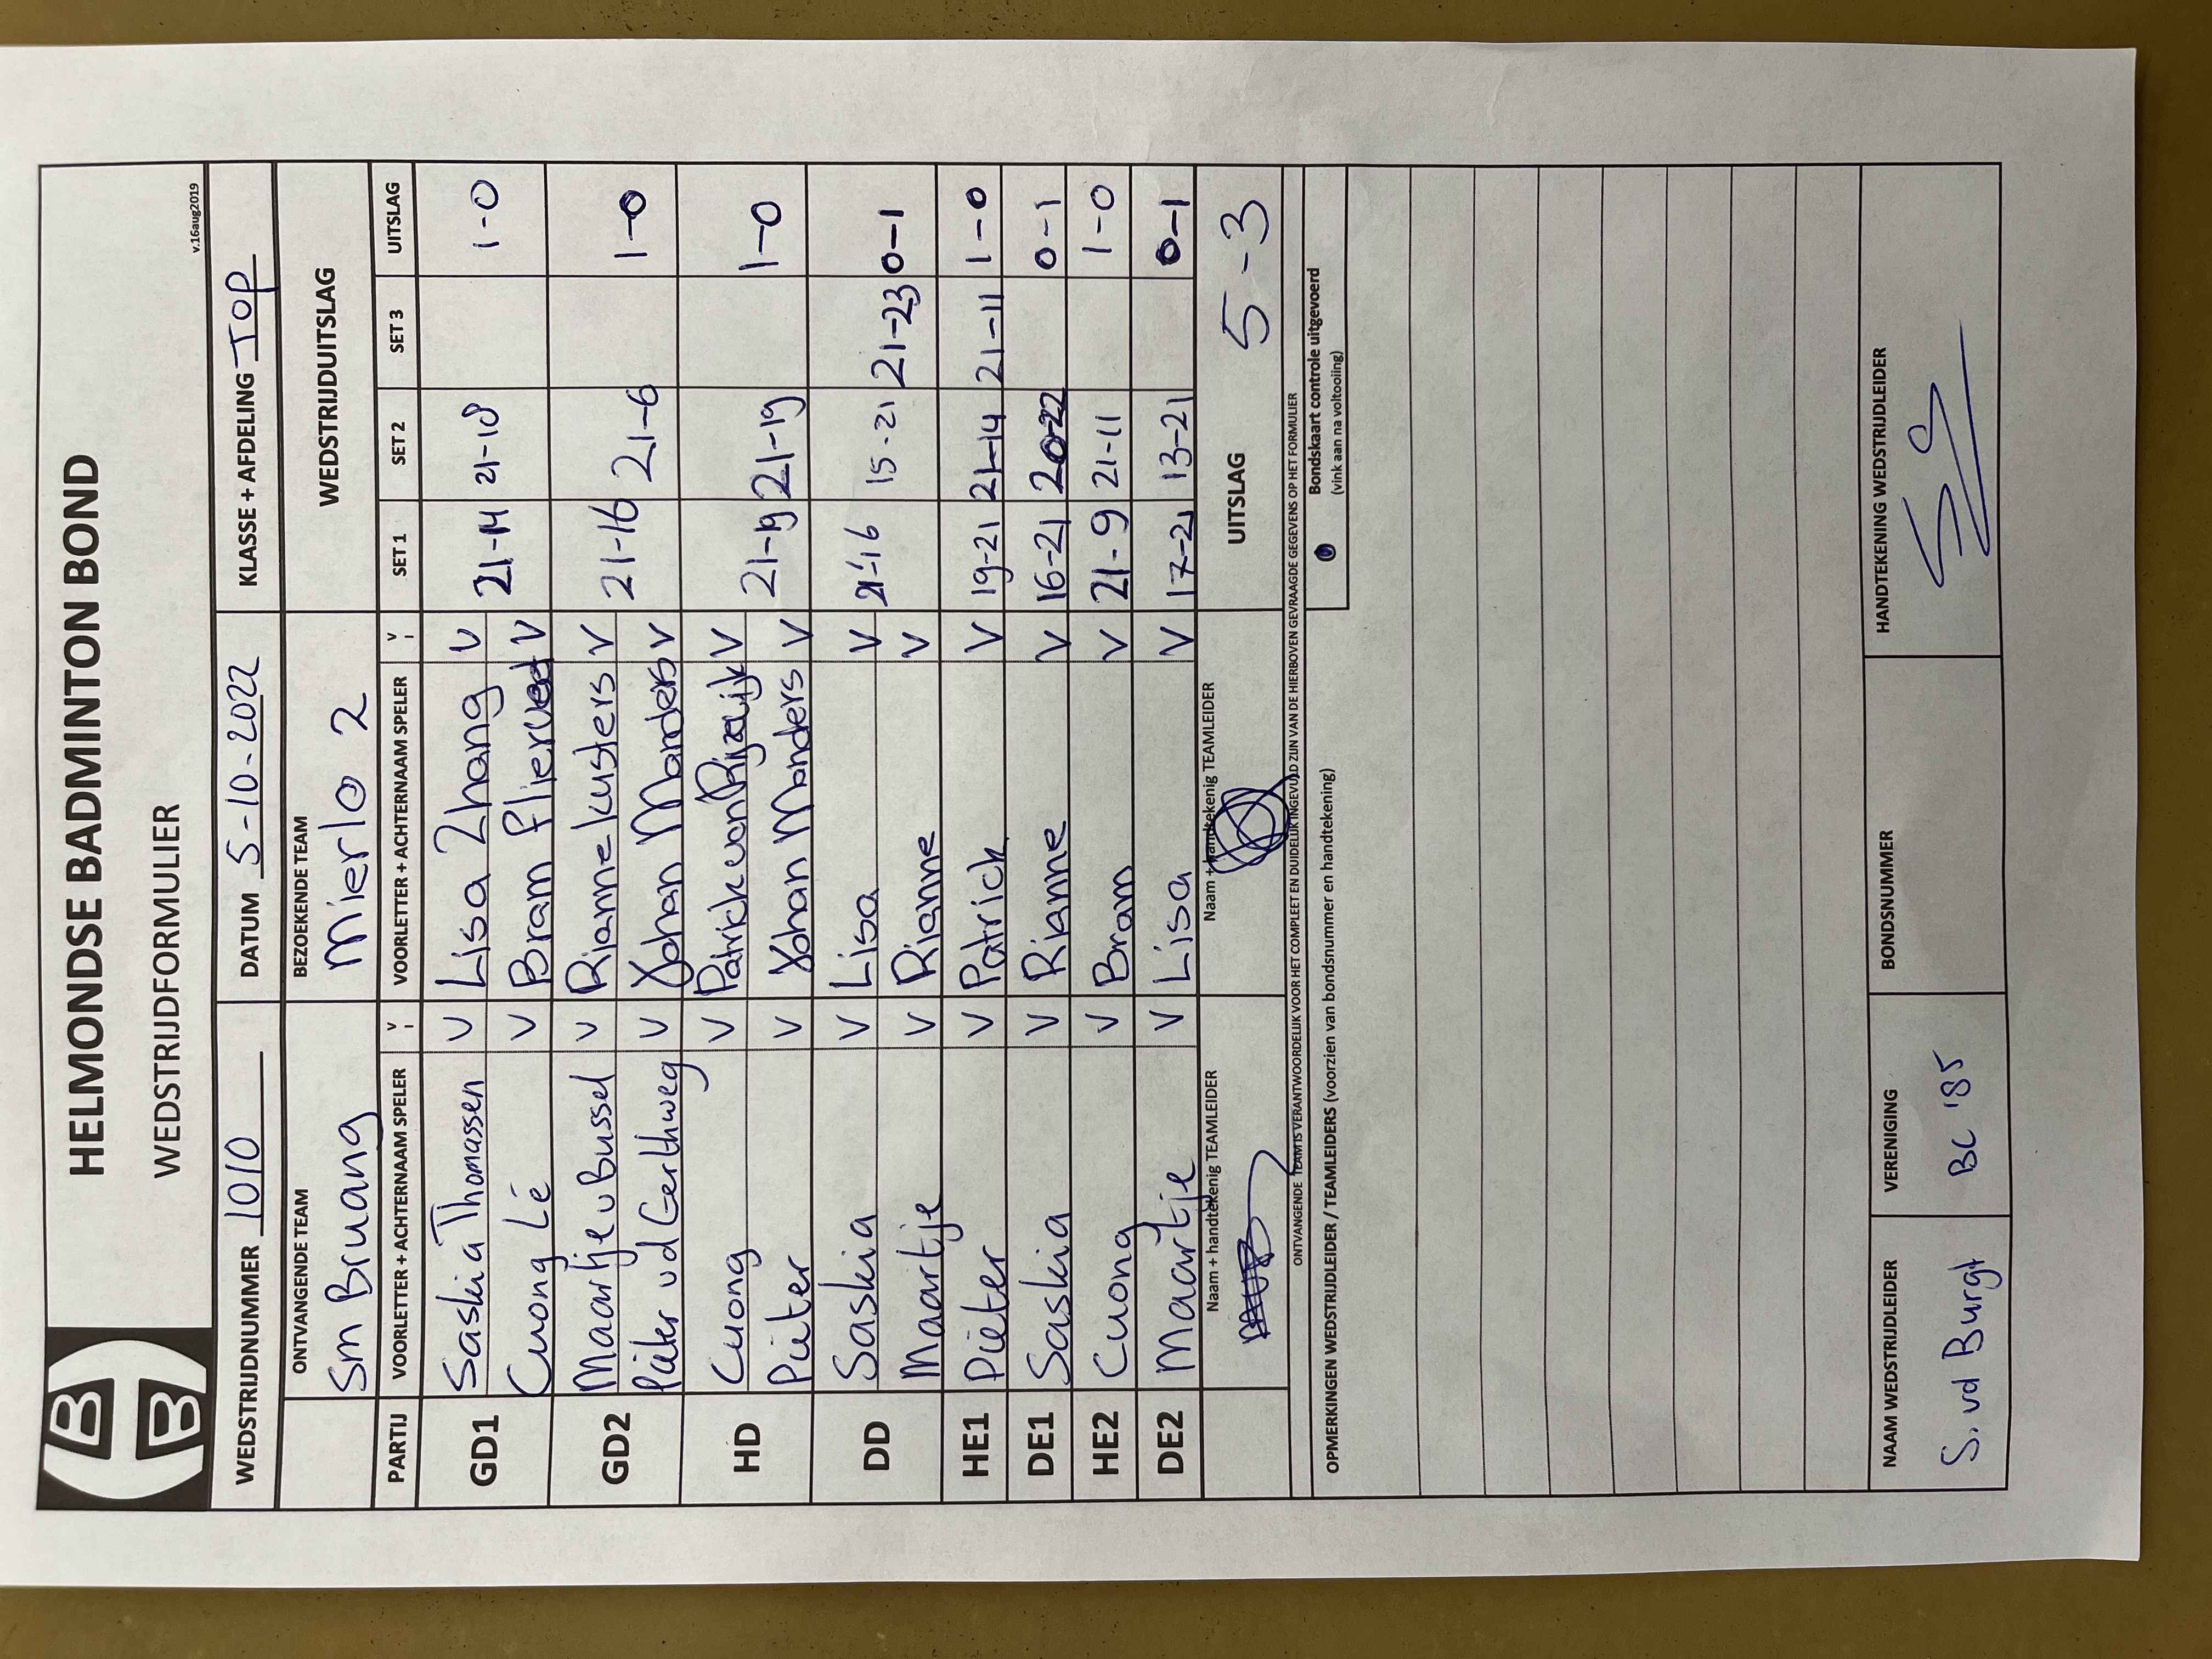 HELMONDSE BADMINTON BOND
WEDSTRIJDFORMULIER
v.16aug2019
WEDSTRIJDNUMMER 1010 DATUM 5-10-2022 KLASSE + AFDELING TOP
ONTVANGENDE TEAM BEZOEKENDE TEAM WEDSTRIJDUITSLAG
Sm Bruang Mierlo 2
PARTIJ VOORLETTER + ACHTERNAAM SPELER V VOORLETTER + ACHTERNAAM SPELER V SET 1 SET 2 SET 3 UITSLAG
GD1 Saskia Thomassen V Lisa Zhang V 21-14 21-18 1-0
Cuong Lé V Bram Fliervoet V
GD2 Maartje v Bussel V Rianne Kusters V 21-16 21-6 1-0
Pieter vd Eerthweg V Johan Manders V
HD Cuong V Patrick van Rijzewijk V 21-19 21-19 1-0
Pieter V Johan Manders V
DD Saskia V Lisa V 21-16 15-21 21-23 0-1
Maartje V Rianne V
HE1 Pieter V Patrick V 19-21 21-14 21-11 1-0
DE1 Saskia V Rianne V 16-21 20-22 0-1
HE2 Cuong V Bram V 21-9 21-11 1-0
DE2 Maartje V Lisa V 17-21 13-21 0-1
Naam + handtekenig TEAMLEIDER Naam + handtekenig TEAMLEIDER UITSLAG 5-3
ONTVANGENDE TEAM IS VERANTWOORDELIJK VOOR HET COMPLEET EN DUIDELIJK INGEVULD ZIJN VAN DE HIERBOVEN GEVRAAGDE GEGEVENS OP HET FORMULIER
OPMERKINGEN WEDSTRIJDLEIDER / TEAMLEIDERS (voorzien van bondsnummer en handtekening)
Bondskaart controle uitgevoerd
(vink aan na voltooiing)
NAAM WEDSTRIJDLEIDER VERENIGING BONDSNUMMER HANDTEKENING WEDSTRIJDLEIDER
S. vd Burgt BC '85